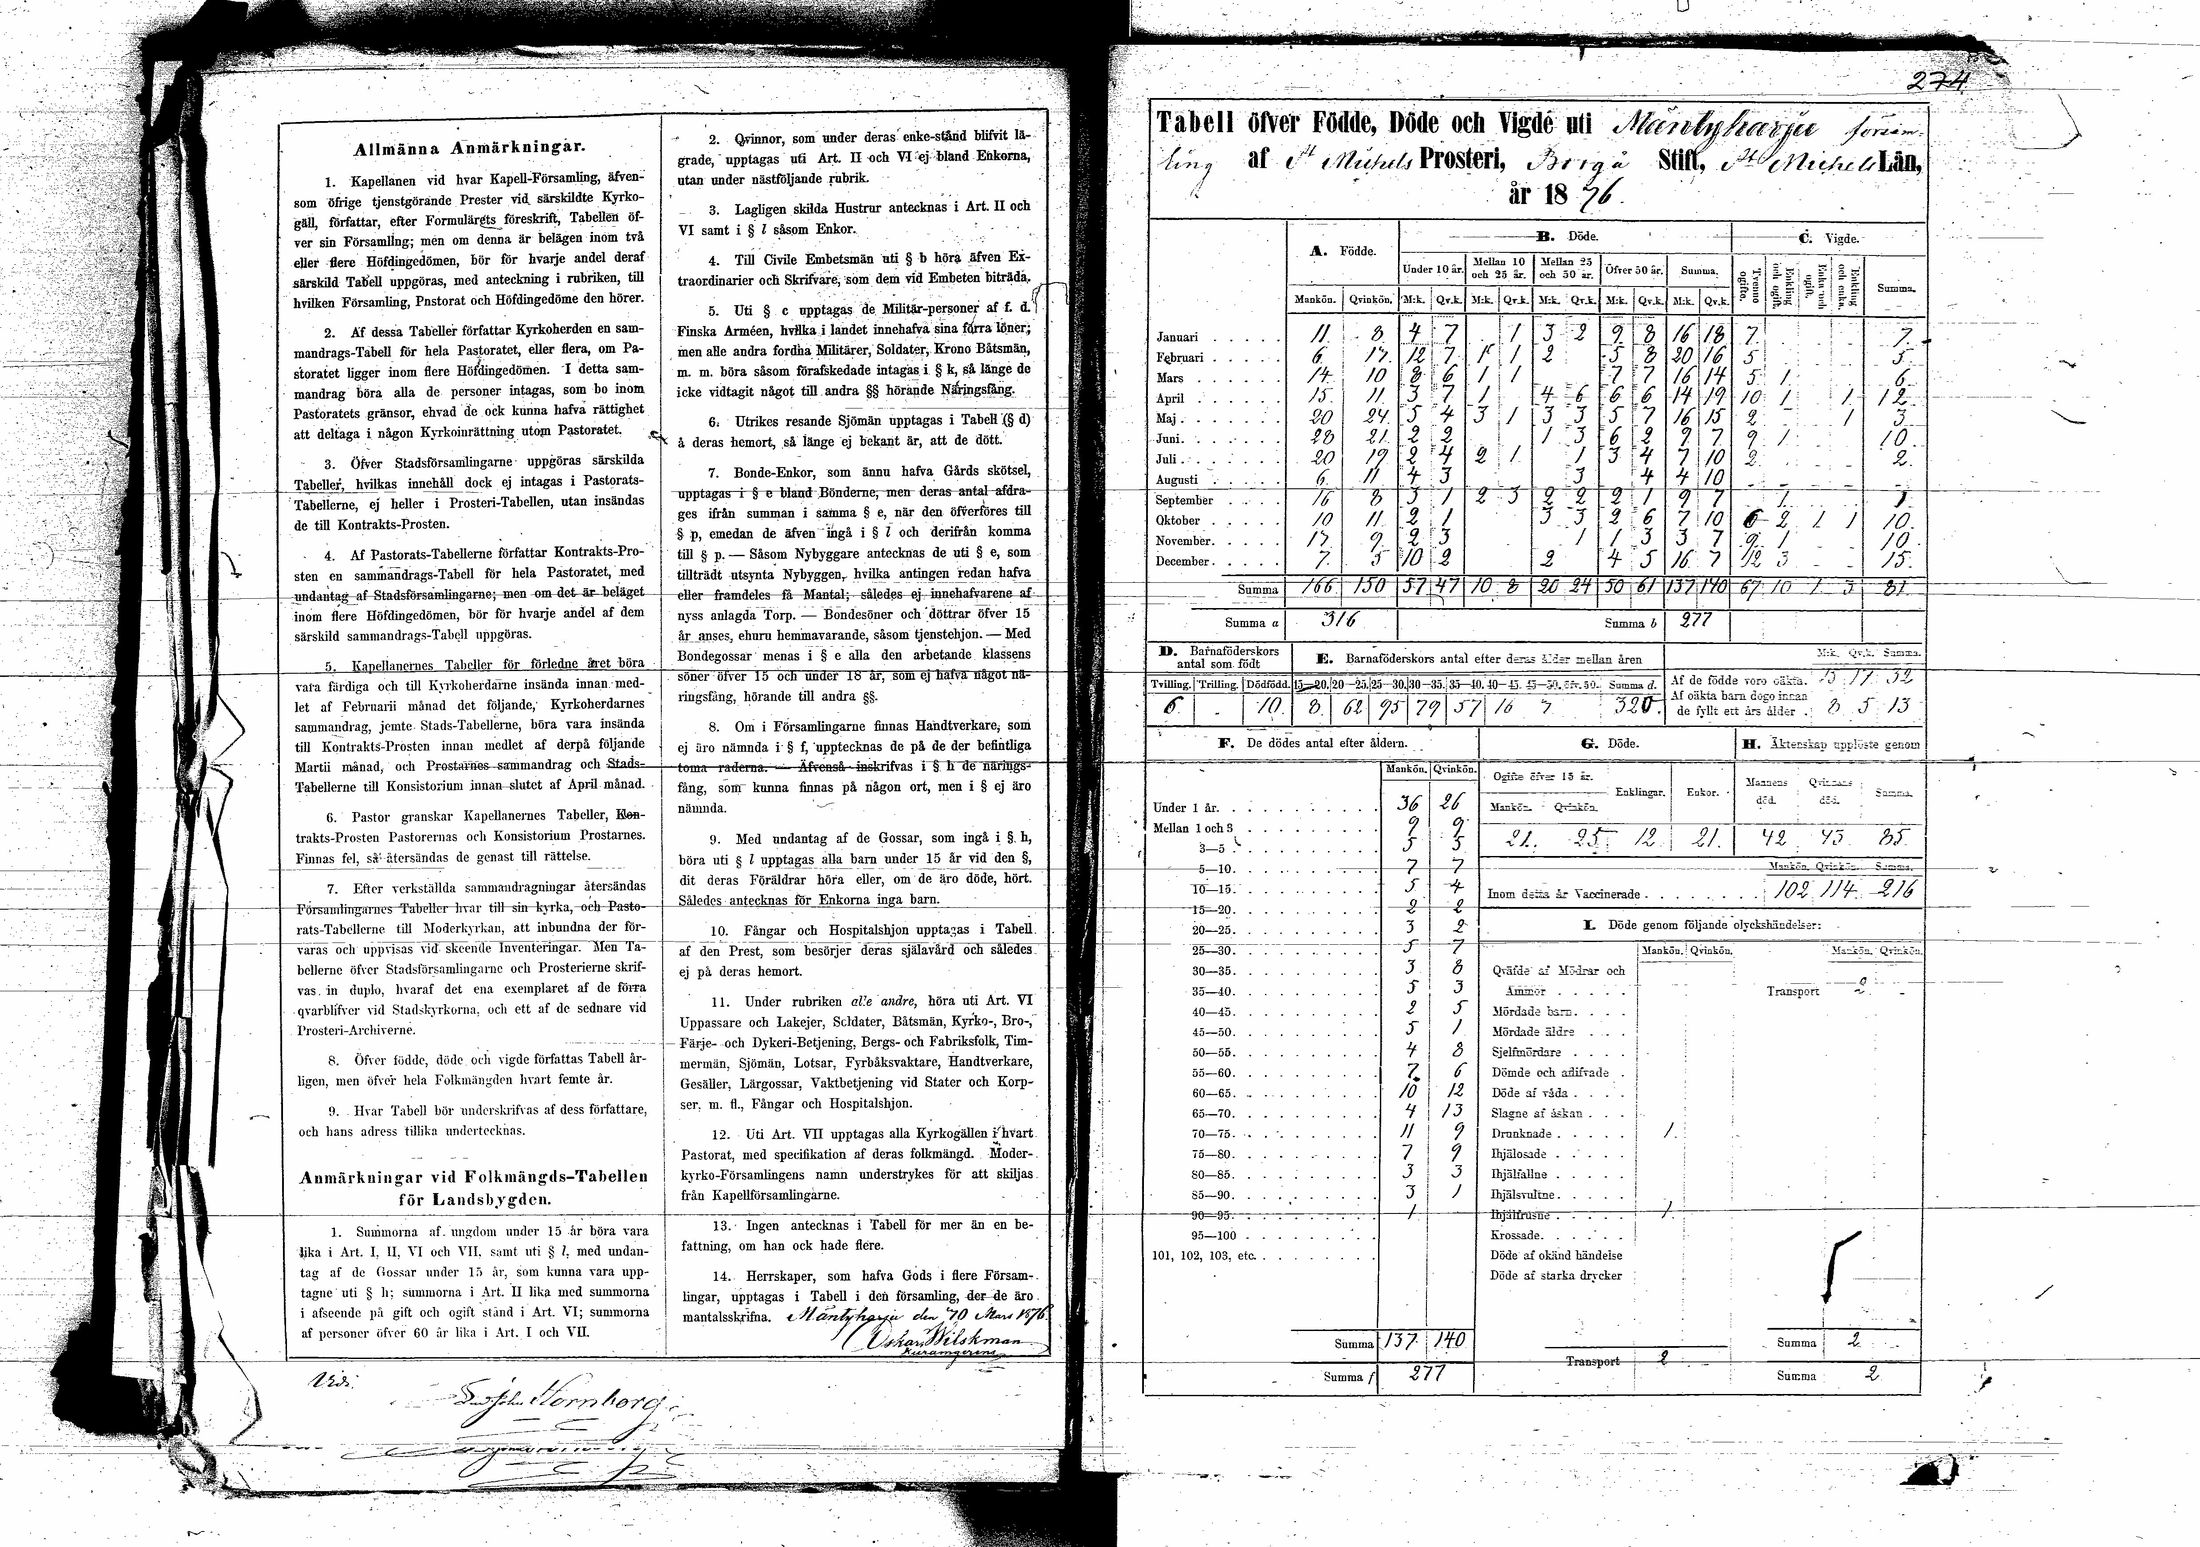 Allmänna Anmärkningar.
1. Kapellanen vid hvar Kapell-Församling, äfven-
som öfrige tjenstgörande Prester vid särskildte Kyrko-
gäll, författar, efter Formulärets föreskrift, Tabellen öf-
ver sin Församling; men om denna är belägen inom två
eller flere Höfdingedömen, bör för hvarje andel deraf
särskild Tabell uppgöras, med anteckning i rubriken, till
hvilken Församling, Pastorat och Höfdingedöme den hörer.
2. Af dessa Tabeller författar Kyrkoherden en sam-
mandrags-Tabell för hela Pastoratet, eller flera, om Pa-
storatet ligger inom flere Höfdingedömen. I detta sam-
mandrag böra alla de personer intagas, som bo inom
Pastoratets gränsor, ehvad de ock kunna hafva rättighet
att deltaga i någon Kyrkoinrättning utom Pastoratet.
3. Öfver Stadsförsamlingarne uppgöras särskilda
Tabeller, hvilkas innehåll dock ej intagas i Pastorats-
Tabellerne, ej heller i Prosteri-Tabellen, utan insändas
de till Kontrakts-Prosten.
4. Af Pastorats-Tabellerne författar Kontrakts-Pro-
sten en sammandrags-Tabell för hela Pastoratet, med
undantag af Stadsförsamlingarne; men om det är beläget
inom flere Höfdingedömen, bör för hvarje andel af dem
särskild sammandrags-Tabell uppgöras.
5. Kapellanernes Tabeller för förledne året böra
vara färdiga och till Kyrkoherdarne insända innan med-
let af Februarii månad det följande, Kyrkoherdarnes
sammandrag, jemte Stads-Tabellerne, böra vara insända
till Kontrakts-Prosten innan medlet af derpå följande
Martii månad, och Prostarnes sammandrag och Stads-
Tabellerne till Konsistorium innan slutet af April månad.
6. Pastor granskar Kapellanernes Tabeller, Kon-
trakts-Prosten Pastorernas och Konsistorium Prostarnes.
Finnas fel, så återsändas de genast till rättelse.
7. Efter verkställda sammandragningar återsändas
Församlingarnes Tabeller hvar till sin kyrka, och Pasto-
rats-Tabellerne till Moderkyrkan, att inbundna der för-
varas och uppvisas vid skeende Inventeringar. Men Ta-
bellerne öfver Stadsförsamlingarne och Prosterierne skrif-
vas in duplo, hvaraf det ena exemplaret af de förra
qvarblifver vid Stadskyrkorna, och ett af de sednare vid
Prosteri-Archiverne.
8. Öfver födde, döde och vigde författas Tabell år-
ligen, men öfver hela Folkmängden hvart femte år.
9. Hvar Tabell bör underskrifvas af dess författare,
och hans adress tillika undertecknas.
Anmärkningar vid Folkmängds-Tabellen
för Landsbygden.
1. Summorna af ungdom under 15 år böra vara
lika i Art. I, II, VI och VII, samt uti § l, med undan-
tag af de Gossar under 15 år, som kunna vara upp-
tagne uti § h; summorna i Art. II lika med summorna
i afseende på gift och ogift stånd i Art. VI; summorna
af personer öfver 60 år lika i Art. I och VII.
2. Qvinnor, som under deras enke-stånd blifvit lä-
grade, upptagas uti Art. II och VI ej bland Enkorna,
utan under nästföljande rubrik.
3. Lagligen skilda Hustrur antecknas i Art. II och
VI samt i § l såsom Enkor.
4. Till Civile Embetsmän uti § b höra äfven Ex-
traordinarier och Skrifvare, som dem vid Embeten biträda.
5. Uti § c upptagas de Militär-personer af f. d.
Finska Arméen, hvilka i landet innehafva sina förra löner;
men alle andra fordna Militärer, Soldater, Krono Båtsmän,
m. m. böra såsom förafskedade intagas i § k, så länge de
icke vidtagit något till andra §§ hörande Näringsfång.
6. Utrikes resande Sjömän upptagas i Tabell (§ d)
å deras hemort, så länge ej bekant är, att de dött.
7. Bonde-Enkor, som ännu hafva Gårds skötsel,
upptagas i § e bland Bönderne, men deras antal afdra-
ges ifrån summan i samma § e, när den öfverföres till
§ p, emedan de äfven ingå i § l och derifrån komma
till § p. — Såsom Nybyggare antecknas de uti § e, som
tillträdt utsynta Nybyggen, hvilka antingen redan hafva
eller framdeles få Mantal; således ej innehafvarene af
nyss anlagda Torp. — Bondesöner och döttrar öfver 15
år anses, ehuru hemmavarande, såsom tjenstehjon. — Med
Bondegossar menas i § e alla den arbetande klassens
söner öfver 15 och under 18 år, som ej hafva något nä-
ringsfång, hörande till andra §§.
8. Om i Församlingarne finnas Handtverkare, som
ej äro nämnda i § f, upptecknas de på de der befintliga
toma raderna. — Äfvenså inskrifvas i § h de närings-
fång, som kunna finnas på någon ort, men i § ej äro
nämnda.
9. Med undantag af de Gossar, som ingå i § h,
böra uti § l upptagas alla barn under 15 år vid den §,
dit deras Föräldrar höra eller, om de äro döde, hört.
Således antecknas för Enkorna inga barn.
10. Fångar och Hospitalshjon upptagas i Tabell
af den Prest, som besörjer deras själavård och således
ej på deras hemort.
11. Under rubriken alle andre, höra uti Art. VI
Uppassare och Lakejer, Soldater, Båtsmän, Kyrko-, Bro-,
Färje- och Dykeri-Betjening, Bergs- och Fabriksfolk, Tim-
mermän, Sjömän, Lotsar, Fyrbåksvaktare, Handtverkare,
Gesäller, Lärgossar, Vaktbetjening vid Stater och Korp-
ser, m. fl., Fångar och Hospitalshjon.
12. Uti Art. VII upptagas alla Kyrkogällen i hvart
Pastorat, med specifikation af deras folkmängd. Moder-
kyrko-Församlingens namn understrykes för att skiljas
från Kapellförsamlingarne.
13. Ingen antecknas i Tabell för mer än en be-
fattning, om han ock hade flere.
14. Herrskaper, som hafva Gods i flere Försam-
lingar, upptagas i Tabell i den församling, der de äro
mantalsskrifna. Mäntyharju den 10 Mars 1876
Oskar Wilskman
Vidi
Hornborg
274
Tabell öfver Födde, Döde och Vigde uti Mäntyharju försam-
ling af St Michels Prosteri, Borgå Stift, St Michels Län,
år 1876.
A. Födde. B. Döde. C. Vigde.
Under 10 år. Mellan 10 och 25 år. Mellan 25 och 50 år. Öfver 50 år. Summa. Tvenne ogifte. Enkling och ogift. Enka och ogift. Enkling och enka Summa.
Mankön. Qvinkön. M:k. Qv.k. M:k. Qv.k. M:k. Qv.k. M:k. Qv.k. M:k. Qv.k.
Januari 11 8 4 7 1 3 2 9 8 16 18 7 7
Februari 6 17 12 7 1 1 2 5 8 20 16 5 5
Mars 14 10 8 6 1 1 7 7 16 14 5 1 6
April 15 11 3 7 1 4 6 6 6 14 19 10 1 1 12
Maj 20 24 5 4 3 1 3 3 5 7 16 15 2 1 3
Juni 28 21 2 2 1 3 6 2 9 7 9 1 10
Juli 20 19 2 4 2 1 1 3 4 7 10 2 2
Augusti 6 11 4 3 3 4 4 10
September 16 8 3 1 2 3 2 2 2 1 9 7 1 1
Oktober 10 11 2 1 3 3 2 6 7 10 6 2 1 1 10
November 13 9 2 3 1 1 3 3 7 9 1 10
December 7 5 10 2 2 4 5 16 7 12 3 15
Summa 166 150 57 47 10 8 20 24 50 61 137 140 67 10 1 3 81
Summa a 316 Summa b 277
D. Barnaföderskors antal som födt
E. Barnaföderskors antal efter deras ålder mellan åren
M:k. Qv.k. Summa.
Tvilling. Trilling. Dödfödd. 15—20. 20—25. 25—30. 30—35. 35—40. 40—45. 45—50. öfv. 50. Summa d.
6 . 10 8 62 95 79 57 16 3 320
Af de födde voro oäkta. 15 17 32
Af oäkta barn dogo innan
de fyllt ett års ålder 8 5 13
F. De dödes antal efter åldern.
Mankön. Qvinkön.
Under 1 år. 36 26
Mellan 1 och 3 9 9
3—5 5 5
5—10. 7 7
10—15. 5 4
15—20. 2 2
20—25. 3 2
25—30. 5 7
30—35. 3 8
35—40. 5 3
40—45. 2 5
45—50. 5 1
50—55. 4 8
55—60. 7 6
60—65. 10 12
65—70. 4 13
70—75. 11 9
75—80. 7 9
80—85. 3 3
85—90. 3 1
90—95. 1
95—100
101, 102, 103, etc.
Summa 137 140
Summa f 277
G. Döde.
Ogifte öfver 15 år. Enklingar. Enkor.
Mankön. Qvinkön.
21 25 12 21
H. Äktenskap upplöste genom
Mannens död. Qvinnans död. Summa.
42 43 85
Mankön. Qvinkön. Summa.
Inom detta år Vaccinerade 102 114 216
I. Döde genom följande olyckshändelser:
Mankön. Qvinkön. Mankön. Qvinkön.
Qväfde af Mödrar och
Ammor Transport 2
Mördade barn
Mördade äldre
Sjelfmördare
Dömde och aflifvade
Döde af våda
Slagne af åskan
Drunknade 1
Ihjälosade
Ihjälfallne
Ihjälsvultne
Ihjälfrusne 1
Krossade
Döde af okänd händelse
Döde af starka drycker
Transport 2
Summa 2
Summa 2